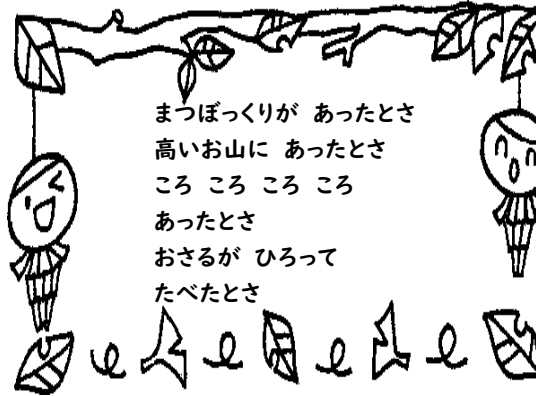 まつぼっくりが あったとさ
高いお山に あったとさ
ころ ころ ころ ころ
あったとさ
おさるが ひろって
たべたとさ